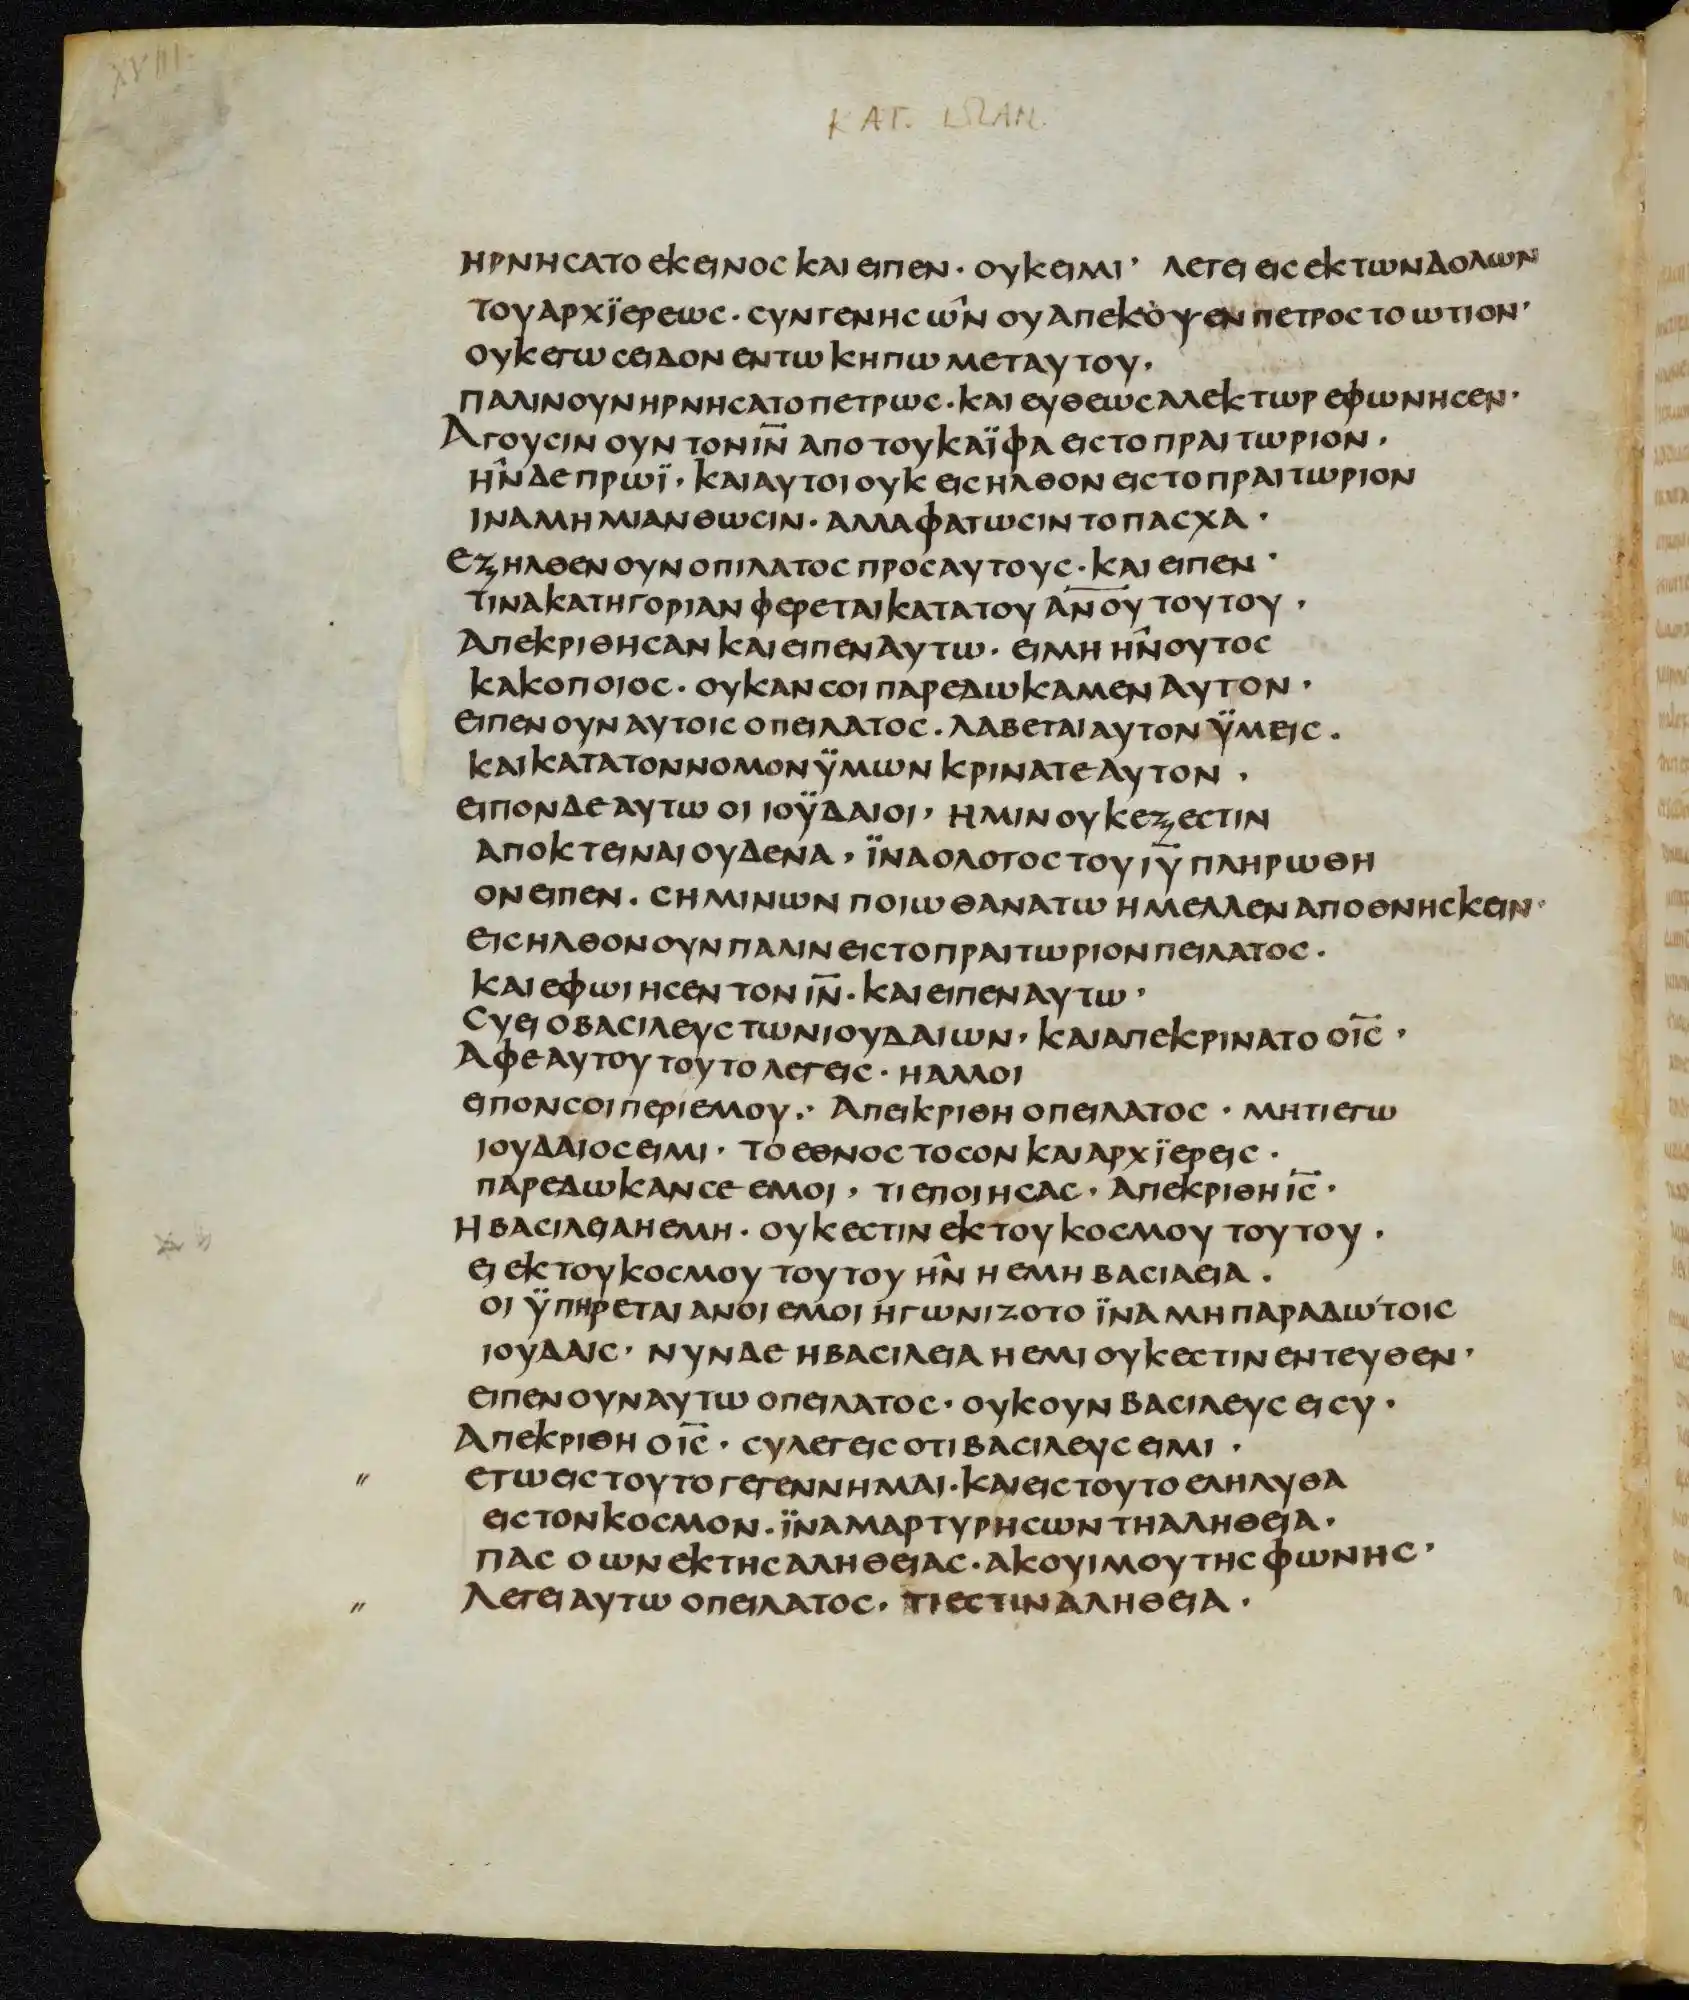 XVIII.
ΚΑΤ. ΙΩΑΝ.
ΗΡΝΗCΑΤΟ ΕΚΕΙΝΟC ΚΑΙ ΕΙΠΕΝ· ΟΥΚ ΕΙΜΙ· ΛΕΓΕΙ ΕΙC ΕΚ ΤΩΝ ΔΟΛΩΝ
ΤΟΥ ΑΡΧΪΕΡΕΩC· CΥΝΓΕΝΗC ΩΝ̂ ΟΥ ΑΠΕΚΟΨΕΝ ΠΕΤΡΟC ΤΟ ΩΤΙΟΝ·
ΟΥΚ ΕΓΩ CΕΙΔΟΝ ΕΝ ΤΩ ΚΗΠΩ ΜΕΤ ΑΥΤΟΥ·
ΠΑΛΙΝ ΟΥΝ ΗΡΝΗCΑΤΟ ΠΕΤΡΩC· ΚΑΙ ΕΥΘΕΩC ΑΛΕΚΤΩΡ ΕΦΩΝΗCΕΝ·
ΑΓΟΥCΙΝ ΟΥΝ ΤΟΝ Ι̅Ν̅ ΑΠΟ ΤΟΥ ΚΑΪΦΑ ΕΙC ΤΟ ΠΡΑΙΤΩΡΙΟΝ·
ΗΝ̂ ΔΕ ΠΡΩΪ· ΚΑΙ ΑΥΤΟΙ ΟΥΚ ΕΙCΗΛΘΟΝ ΕΙC ΤΟ ΠΡΑΙΤΩΡΙΟΝ
ΙΝΑ ΜΗ ΜΙΑΝΘΩCΙΝ· ΑΛΛΑ ΦΑΓΩCΙΝ ΤΟ ΠΑCΧΑ·
ΕΞΗΛΘΕΝ ΟΥΝ Ο ΠΙΛΑΤΟC ΠΡΟC ΑΥΤΟΥC· ΚΑΙ ΕΙΠΕΝ·
ΤΙΝΑ ΚΑΤΗΓΟΡΙΑΝ ΦΕΡΕΤΑΙ ΚΑΤΑ ΤΟΥ Α̅Ν̅Ο̅Υ̅ ΤΟΥΤΟΥ·
ΑΠΕΚΡΙΘΗCΑΝ ΚΑΙ ΕΙΠΕΝ ΑΥΤΩ· ΕΙ ΜΗ ΗΝ̂ ΟΥΤΟC
ΚΑΚΟΠΟΙΟC· ΟΥΚ ΑΝ CΟΙ ΠΑΡΕΔΩΚΑΜΕΝ ΑΥΤΟΝ·
ΕΙΠΕΝ ΟΥΝ ΑΥΤΟΙC Ο ΠΕΙΛΑΤΟC· ΛΑΒΕΤΑΙ ΑΥΤΟΝ ΫΜΕΙC·
ΚΑΙ ΚΑΤΑ ΤΟΝ ΝΟΜΟΝ ΫΜΩΝ ΚΡΙΝΑΤΕ ΑΥΤΟΝ·
ΕΙΠΟΝ ΔΕ ΑΥΤΩ ΟΙ ΙΟΫΔΑΙΟΙ· ΗΜΙΝ ΟΥΚ ΕΞΕCΤΙΝ
ΑΠΟΚΤΕΙΝΑΙ ΟΥΔΕΝΑ· ΪΝΑ Ο ΛΟΓΟC ΤΟΥ Ι̅Υ̅ ΠΛΗΡΩΘΗ
ΟΝ ΕΙΠΕΝ· CΗΜΙΝΩΝ ΠΟΙΩ ΘΑΝΑΤΩ ΗΜΕΛΛΕΝ ΑΠΟΘΝΗCΚΕΙΝ·
ΕΙCΗΛΘΟΝ ΟΥΝ ΠΑΛΙΝ ΕΙC ΤΟ ΠΡΑΙΤΩΡΙΟΝ ΠΕΙΛΑΤΟC·
ΚΑΙ ΕΦΩΙΗCΕΝ ΤΟΝ Ι̅Ν̅· ΚΑΙ ΕΙΠΕΝ ΑΥΤΩ·
CΥ ΕΙ Ο ΒΑCΙΛΕΥC ΤΩΝ ΙΟΥΔΑΙΩΝ· ΚΑΙ ΑΠΕΚΡΙΝΑΤΟ Ο Ι̅C̅·
ΑΦ ΕΑΥΤΟΥ ΤΟΥΤΟ ΛΕΓΕΙC· Η ΑΛΛΟΙ
ΕΙΠΟΝ CΟΙ ΠΕΡΙ ΕΜΟΥ·· ΑΠΕΙΚΡΙΘΗ Ο ΠΕΙΛΑΤΟC· ΜΗΤΙ ΕΓΩ
ΙΟΥΔΑΙΟC ΕΙΜΙ· ΤΟ ΕΘΝΟC ΤΟ CΟΝ ΚΑΙ ΑΡΧΪΕΡΕΙC·
ΠΑΡΕΔΩΚΑΝ CΕ ΕΜΟΙ· ΤΙ ΕΠΟΙΗCΑC· ΑΠΕΚΡΙΘΗ Ι̅C̅·
Η ΒΑCΙΛΕΙΑ Η ΕΜΗ· ΟΥΚ ΕCΤΙΝ ΕΚ ΤΟΥ ΚΟCΜΟΥ ΤΟΥΤΟΥ·
ΕΙ ΕΚ ΤΟΥ ΚΟCΜΟΥ ΤΟΥΤΟΥ ΗΝ̂ Η ΕΜΗ ΒΑCΙΛΕΙΑ·
ΟΙ ΫΠΗΡΕΤΑΙ ΑΝ ΟΙ ΕΜΟΙ ΗΓΩΝΙΖΟΤΟ ΪΝΑ ΜΗ ΠΑΡΑΔΩ ΤΟΙC
ΙΟΥΔΑΙC· ΝΥΝ ΔΕ Η ΒΑCΙΛΕΙΑ Η ΕΜΙ ΟΥΚ ΕCΤΙΝ ΕΝΤΕΥΘΕΝ·
ΕΙΠΕΝ ΟΥΝ ΑΥΤΩ Ο ΠΕΙΛΑΤΟC· ΟΥΚΟΥΝ ΒΑCΙΛΕΥC ΕΙ CΥ·
ΑΠΕΚΡΙΘΗ Ο Ι̅C̅· CΥ ΛΕΓΕΙC ΟΤΙ ΒΑCΙΛΕΥC ΕΙΜΙ·
ΕΓΩ ΕΙC ΤΟΥΤΟ ΓΕΓΕΝΝΗΜΑΙ· ΚΑΙ ΕΙC ΤΟΥΤΟ ΕΛΗΛΥΘΑ
ΕΙC ΤΟΝ ΚΟCΜΟΝ· ΪΝΑ ΜΑΡΤΥΡΗCΩΝ ΤΗ ΑΛΗΘΕΙΑ·
ΠΑC Ο ΩΝ ΕΚ ΤΗC ΑΛΗΘΕΙΑC· ΑΚΟΥΙ ΜΟΥ ΤΗC ΦΩΝΗC·
ΛΕΓΕΙ ΑΥΤΩ Ο ΠΕΙΛΑΤΟC· ΤΙ ΕCΤΙΝ ΑΛΗΘΕΙΑ·